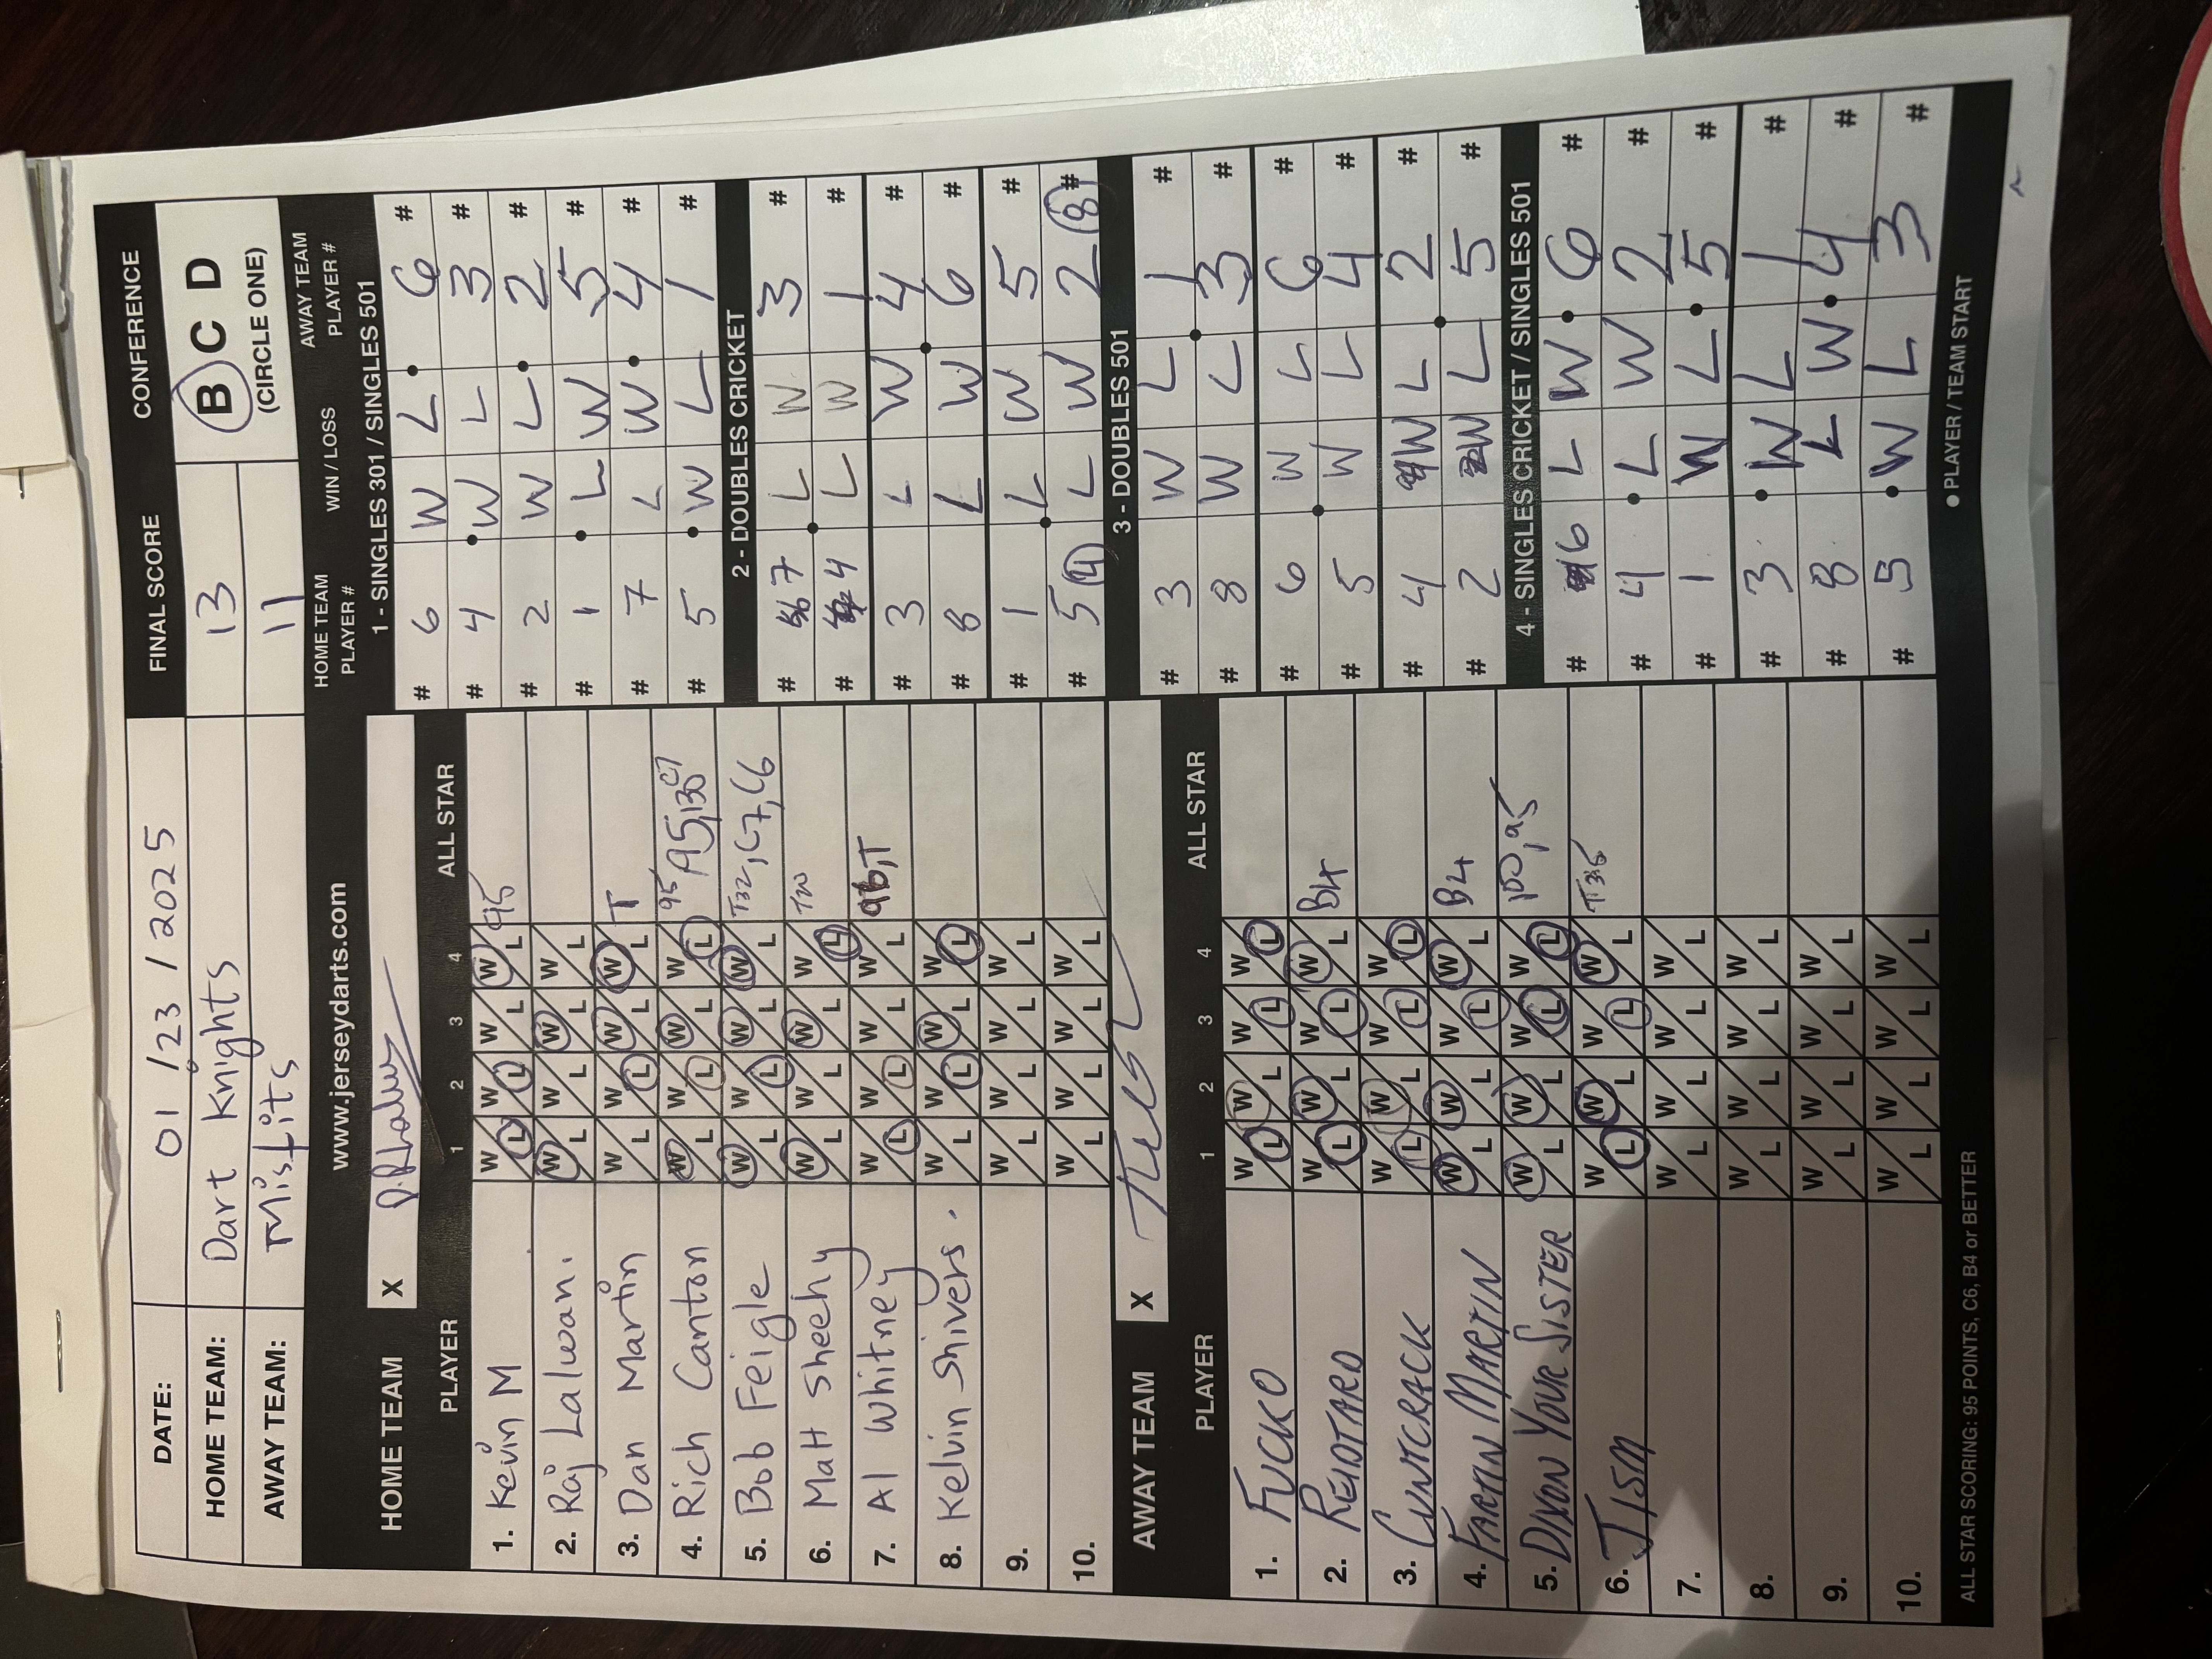 DATE: 01 / 23 / 2025 FINAL SCORE CONFERENCE
HOME TEAM: Dart Knights 13 B C D
AWAY TEAM: Misfits 11 (CIRCLE ONE)
www.jerseydarts.com
HOME TEAM PLAYER # WIN / LOSS AWAY TEAM PLAYER #
HOME TEAM X
PLAYER 1 2 3 4 ALL STAR
1. Kevin M W L W L W L W L 95
2. Raj Lalwani. W L W L W L W L
3. Dan Martin W L W L W L W L T
4. Rich Canton W L W L W L W L 95, 95, 130 C7
5. Bob Feigle W L W L W L W L T32, C7, C6
6. Matt Sheehy W L W L W L W L
7. Al Whitney W L W L W L W L
8. Kelvin Shivers. W L W L W L W L
9. W L W L W L W L
10. W L W L W L W L
AWAY TEAM X
PLAYER 1 2 3 4 ALL STAR
1. FUCKO W L W L W L W L
2. REIDTARD W L W L W L W L B4
3. CUNTCRACK W L W L W L W L
4. FARTIN MARTIN W L W L W L W L B4
5. DIXON YOUR SISTER W L W L W L W L 100, 95
6. JISM W L W L W L W L
7. W L W L W L W L
8. W L W L W L W L
9. W L W L W L W L
10. W L W L W L W L
ALL STAR SCORING: 95 POINTS, C6, B4 or BETTER
1 - SINGLES 301 / SINGLES 501
# 6 W L 6 #
# 4 W L 3 #
# 2 W L 2 #
# 1 L W 5 #
# 7 L W 4 #
# 5 W L 1 #
2 - DOUBLES CRICKET
# 7 L W 3 #
# 4 L W 1 #
# 3 L W 4 #
# 8 L W 6 #
# 1 L W 5 #
# 5 (4) L W 2 (8) #
3 - DOUBLES 501
# 3 W L 1 #
# 8 W L 3 #
# 6 W L 6 #
# 5 W L 4 #
# 4 W L 2 #
# 2 W L 5 #
4 - SINGLES CRICKET / SINGLES 501
# 6 L W 6 #
# 4 L W 2 #
# 1 W L 5 #
# 3 W L 1 #
# 8 L W 4 #
# 5 W L 3 #
● PLAYER / TEAM START